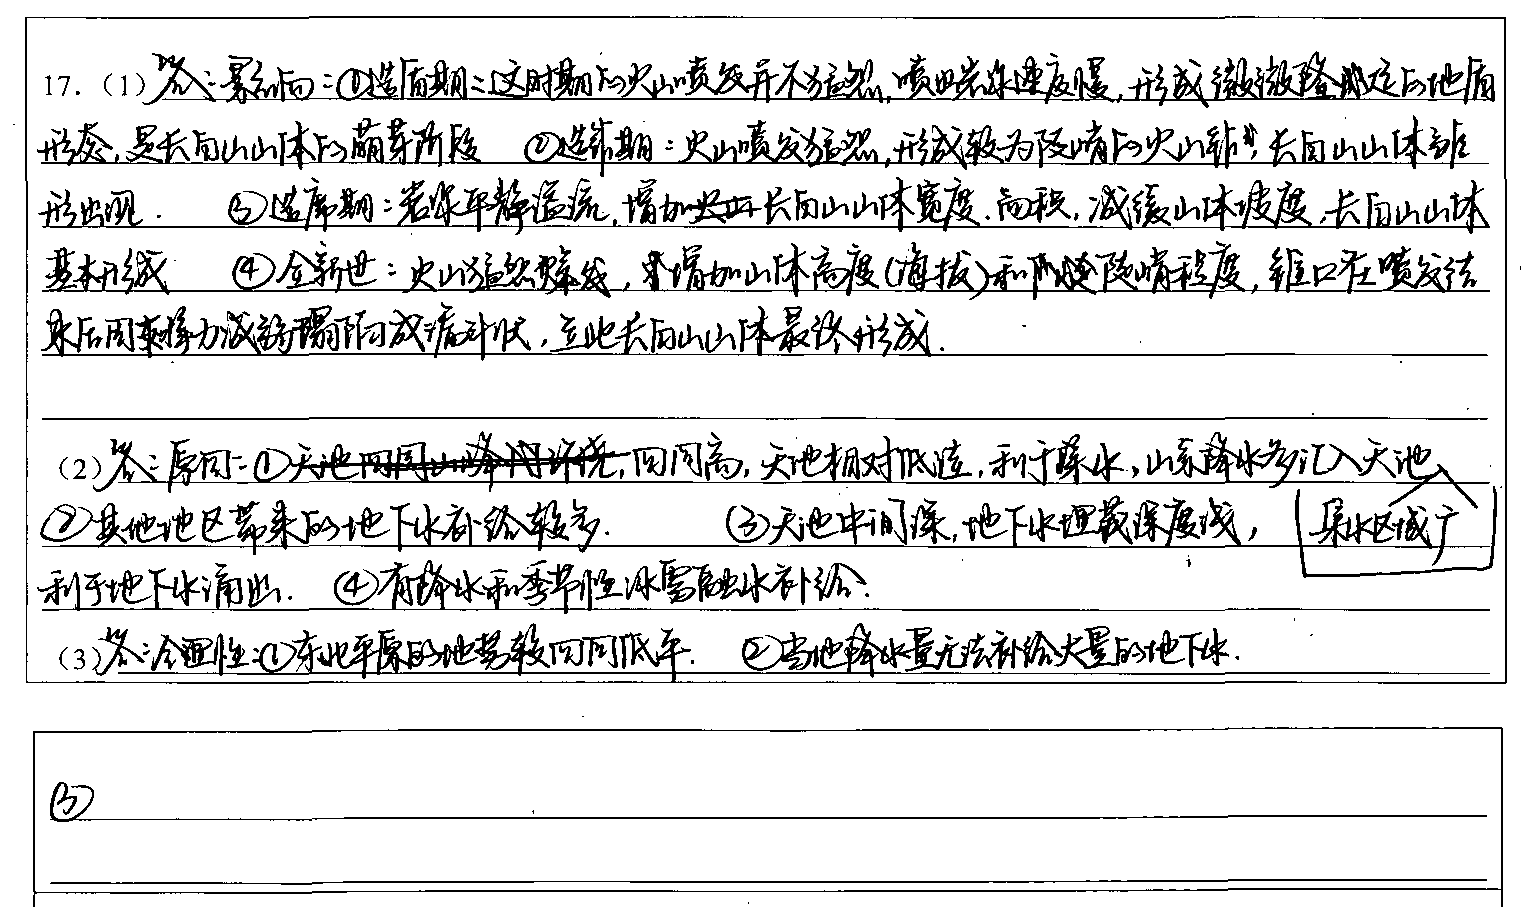 17.(1)答:影响:①造盾期:这时期的火山喷发并不猛烈,喷出岩浆速度慢,形成微微隆起的地盾
形态,是长白山山体的萌芽阶段 ②造锥期:火山喷发猛烈,形成较为陡峭的火山锥,长白山山体雏
形出现. ③造席期:岩浆平静溢流,增加长白山山体宽度、面积,减缓山体坡度,长白山山体
基本形成 ④全新世:火山猛烈爆发,增加山体高度(海拔)和陡峭程度,锥口在喷发结
束后因支撑力减弱塌陷成漏斗状,至此长白山山体最终形成.
(2)答:原因:①四周高,天地相对低洼,利于蓄水,山系降水多汇入天池
②其他地区带来的地下水补给较多. ③天池中间深,地下水埋藏深度浅, 集水区域广
利于地下水涌出. ④有降水和季节性冰雪融水补给.
(3)答:合理性:①东北平原的地势较四周低平. ②当地降水量无法补给大量的地下水.
③